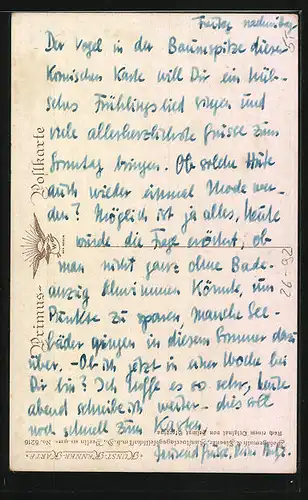 Freitag nachmittag.
Der Vogel in der Baumspitze dieser
komischen Karte will Dir ein hüb-
sches Frühlingslied singen und
viele allerherzlichste Grüsse zum
Sonntag bringen. Ob solche Hüte
auch wieder einmal Mode wer-
den? Möglich ist ja alles, heute
wurde die Frage erörtert, ob
man nicht ganz ohne Bade-
anzug schwimmen könnte, um
Punkte zu sparen, manche See-
bäder gingen in diesem Sommer dazu
über. - Ob ich jetzt in einer Woche bei
Dir bin? Ich hoffe es so sehr, heute
abend schreibe ich weiter - dies soll
noch schnell zum Kasten.
Tausend Grüsse, Dein
Primus-Postkarte
26-92
Nach einem Original von
No. 5216
KUNST KENNER KARTE